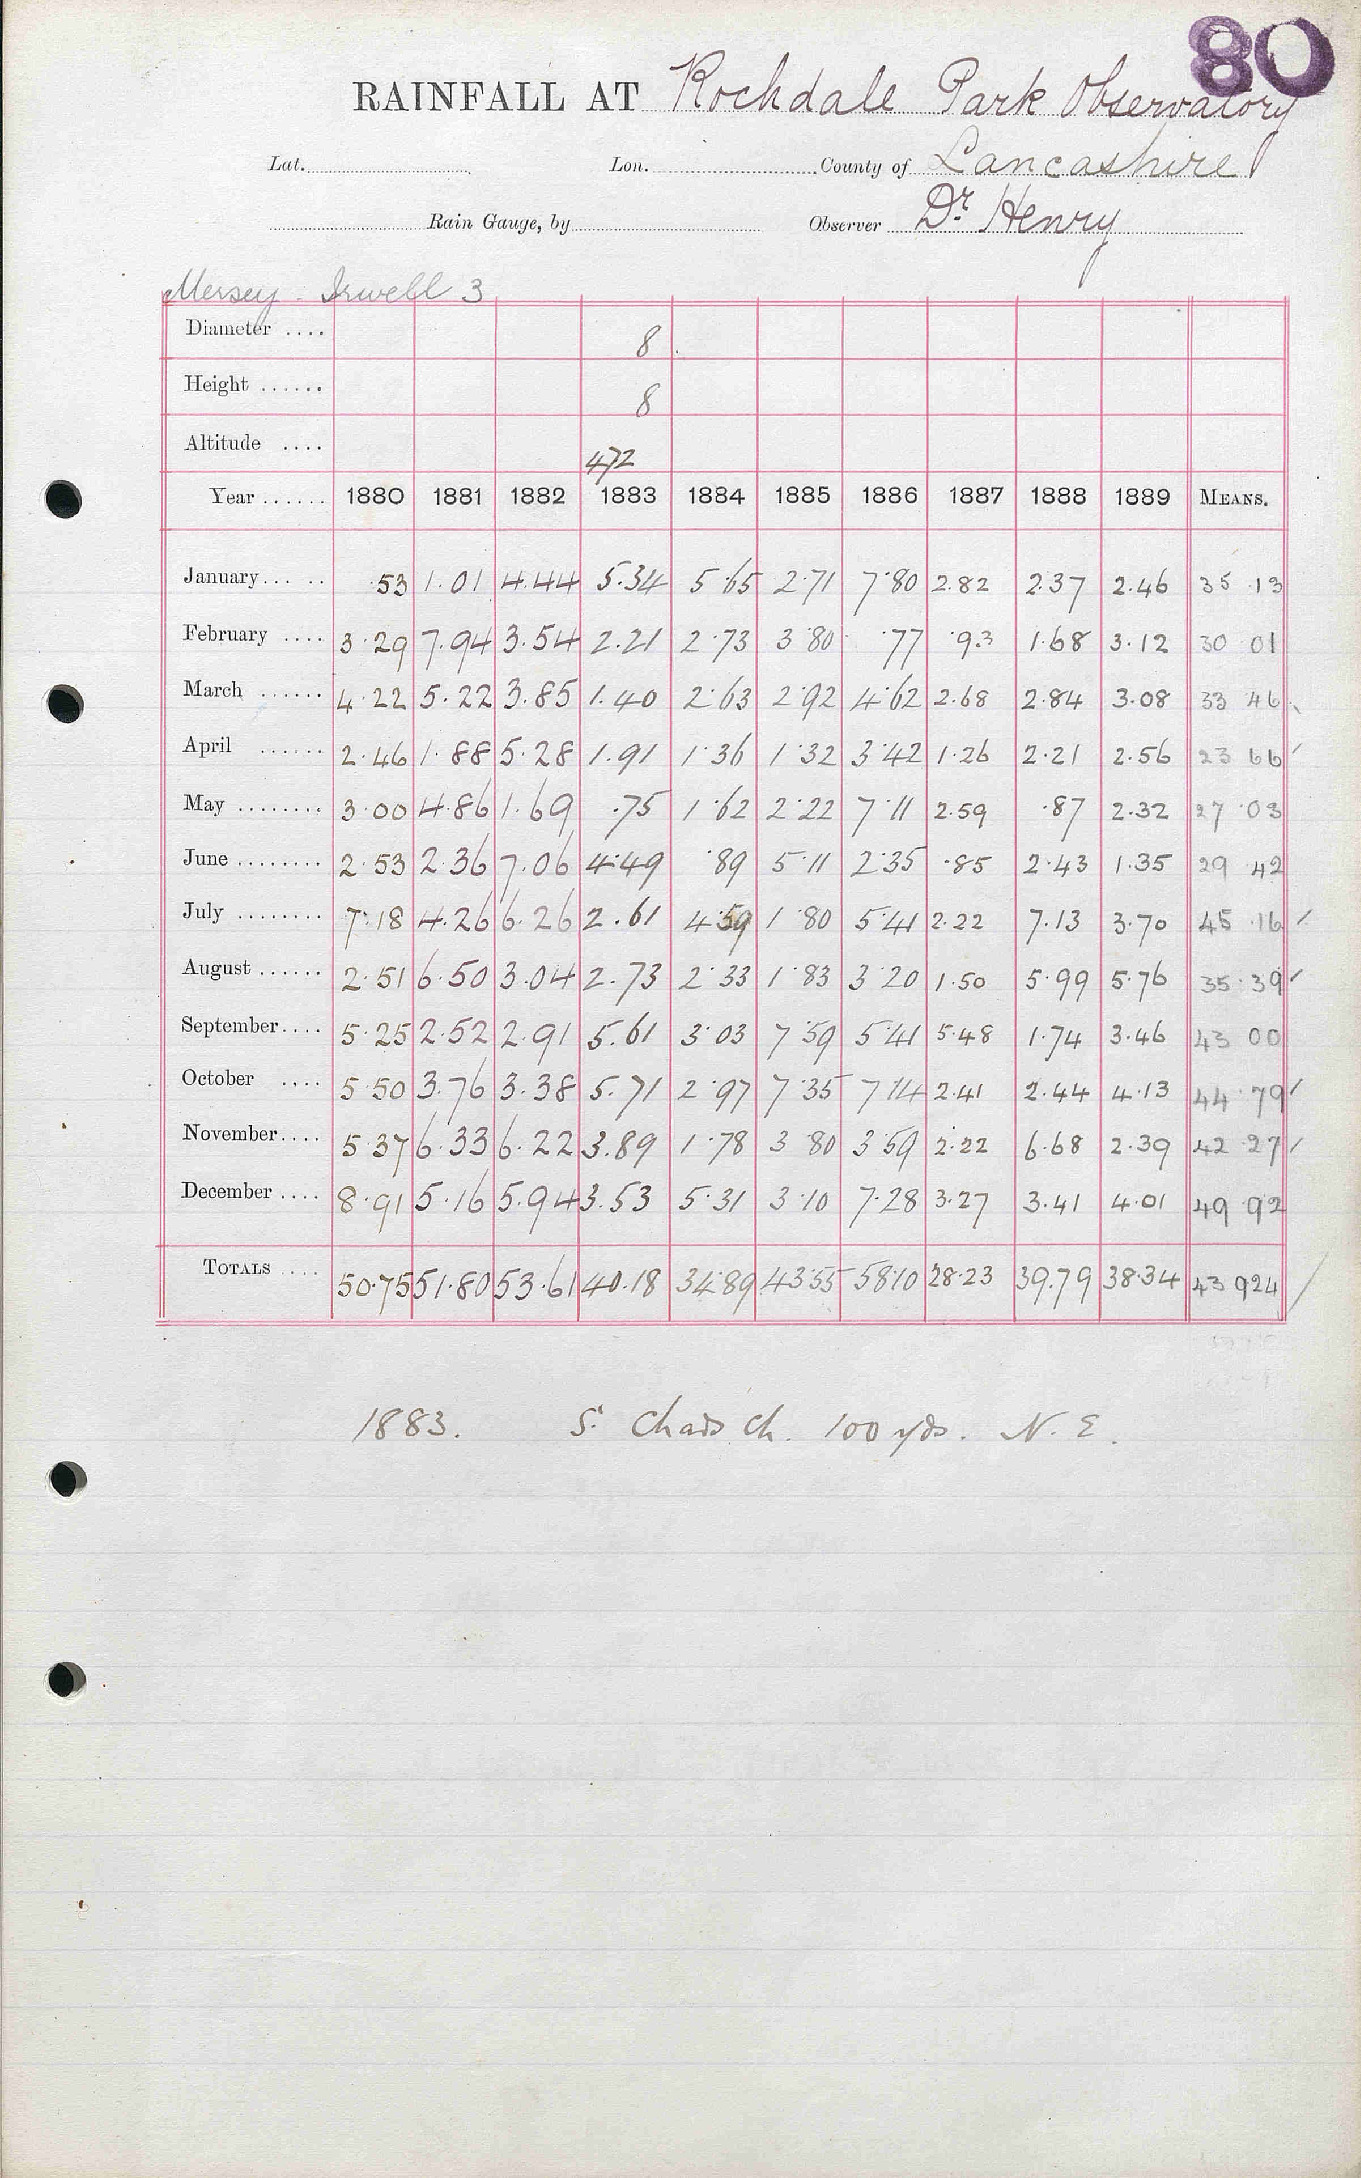 80
RAINFALL AT Rochdale Park Observatory
Lat. Lon. County of Lancashire
Rain Gauge, by Observer Dr. Henry
Mersey - Irwell 3
Diameter .... 8
Height ...... 8
Altitude .... 472
Year ...... 1880 1881 1882 1883 1884 1885 1886 1887 1888 1889 MEANS.
January... .. .53 1.01 4.44 5.34 5.65 2.71 7.80 2.82 2.37 2.46 35 .13
February .... 3.29 7.94 3.54 2.21 2.73 3.80 .77 .93 1.68 3.12 30 01
March ...... 4.22 5.22 3.85 1.40 2.63 2.92 4.62 2.68 2.84 3.08 33 46
April ...... 2.46 1.88 5.28 1.91 1.36 1.32 3.42 1.26 2.21 2.56 23 66
May ........ 3.00 4.86 1.69 .75 1.62 2.22 7.11 2.59 .87 2.32 27 .03
June ........ 2.53 2.36 7.06 4.49 .89 5.11 2.35 .85 2.43 1.35 29 42
July ........ 7.18 4.26 6.26 2.61 4.59 1.80 5.41 2.22 7.13 3.70 45 .16
August ...... 2.51 6.50 3.04 2.73 2.33 1.83 3.20 1.50 5.99 5.76 35.39
September.... 5.25 2.52 2.91 5.61 3.03 7.59 5.41 5.48 1.74 3.46 43 00
October .... 5.50 3.76 3.38 5.71 2.97 7.35 7.14 2.41 2.44 4.13 44.79
November.... 5.37 6.33 6.22 3.89 1.78 3.80 3.59 2.22 6.68 2.39 42.27
December .... 8.91 5.16 5.94 3.53 5.31 3.10 7.28 3.27 3.41 4.01 49 92
TOTALS .... 50.75 51.80 53.61 40.18 34.89 43.55 58.10 28.23 39.79 38.34 43 924
1883. St Chads Ch. 100 yds. N.E.